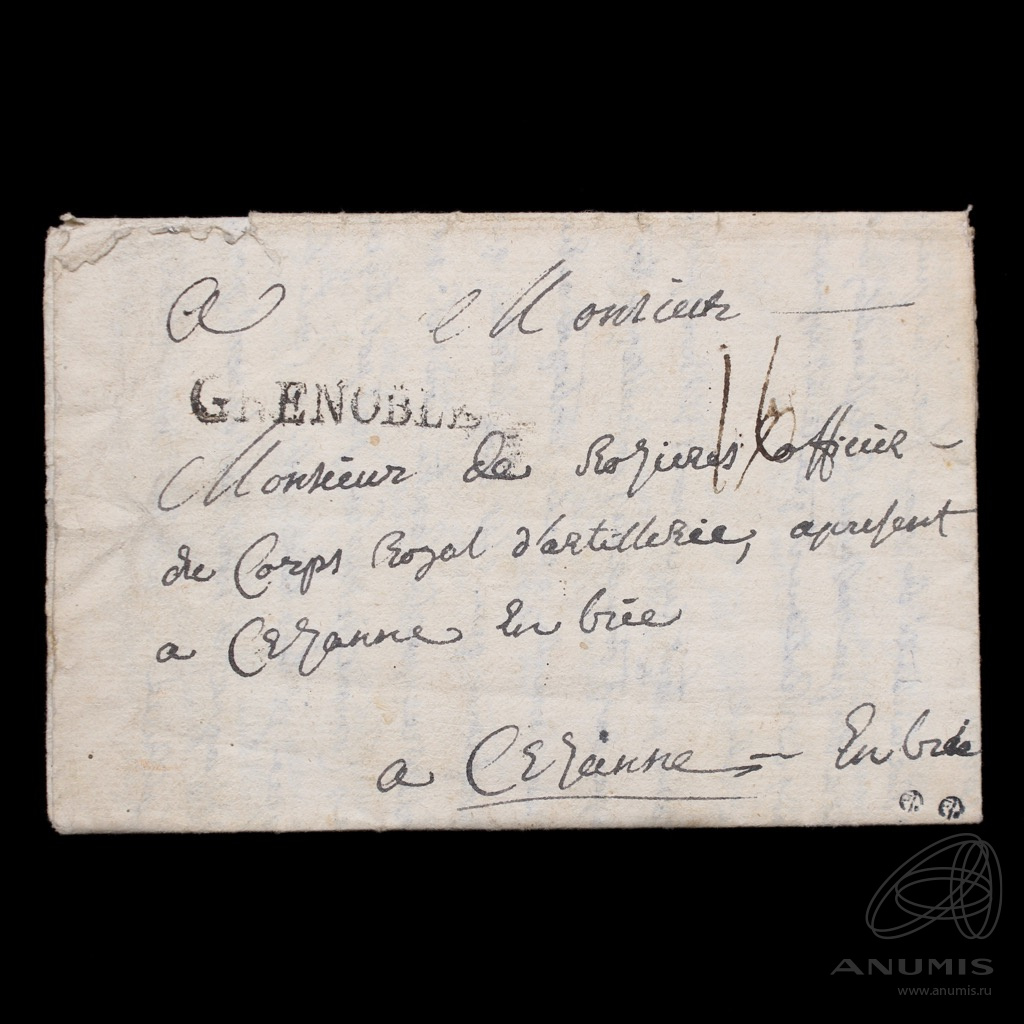 A Monsieur
GRENOBLE
16
Monsieur de Rozieres officier
de Corps Royal d'artillerie, apresent
a Cezanne En brie
a Cezanne = En brie
ANUMIS
www.anumis.ru